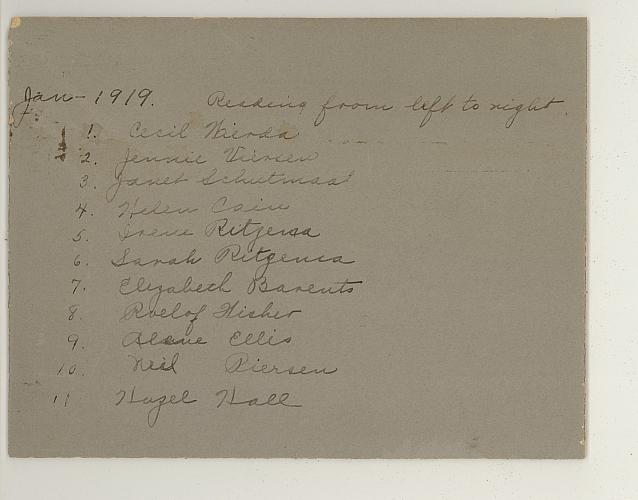 Jan - 1919. Reading from left to right.
1. Cecil Wierda
2. Jennie Viersen
3. Janet Schutmaat
4. Helen Cain
5. Irene Ritzema
6. Sarah Ritzema
7. Elizabeth Barents
8. Roelof
9. Alene Ellis
10. Neil Piersen
11 Hazel Hall